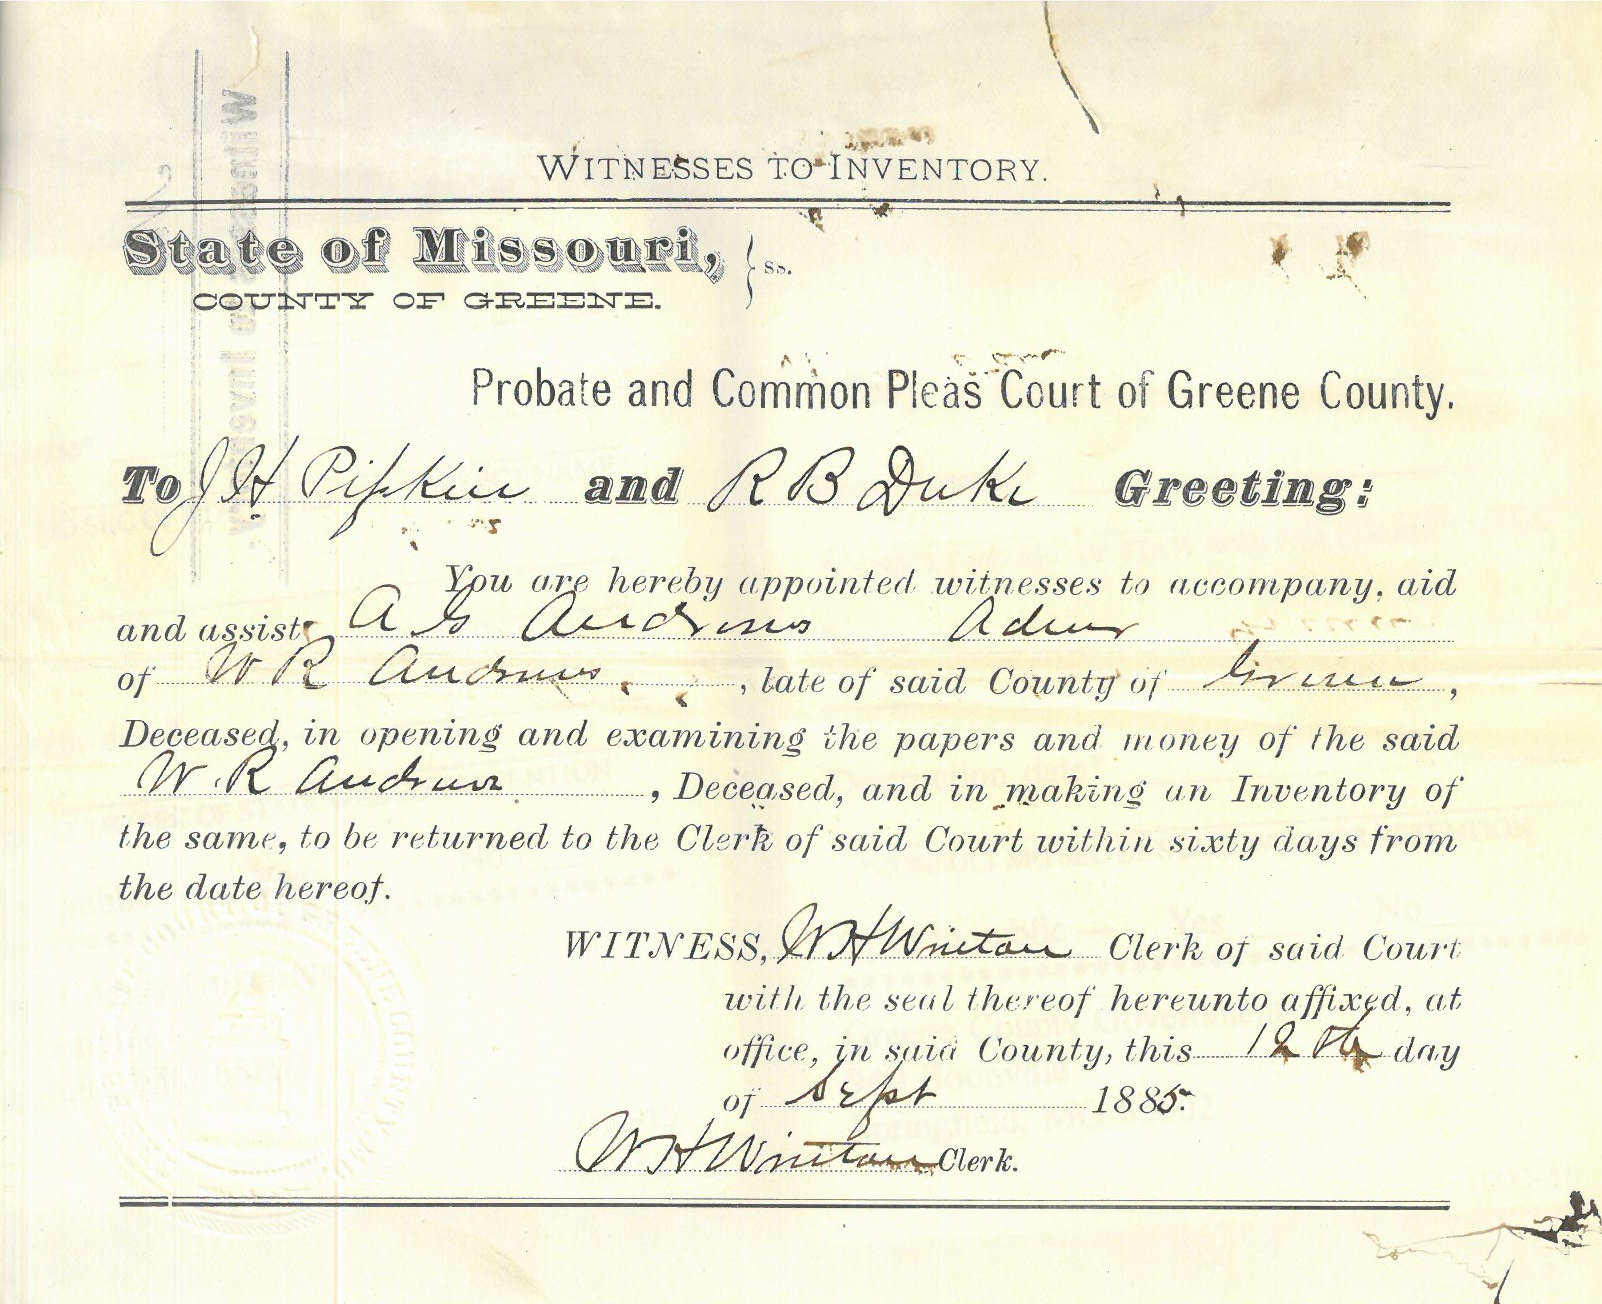 WITNESSES TO INVENTORY.
State of Missouri, } ss.
COUNTY OF GREENE.
Probate and Common Pleas Court of Greene County.
To J H Pipkin and R B Duke Greeting:
You are hereby appointed witnesses to accompany, aid
and assist A G Andrews Admr
of W R Andrews, late of said County of Greene,
Deceased, in opening and examining the papers and money of the said
W. R Andrews, Deceased, and in making an Inventory of
the same, to be returned to the Clerk of said Court within sixty days from
the date hereof.
WITNESS, W H Winton Clerk of said Court
with the seal thereof hereunto affixed, at
office, in said County, this 12th day
of Sept 1885.
W H Winton Clerk.